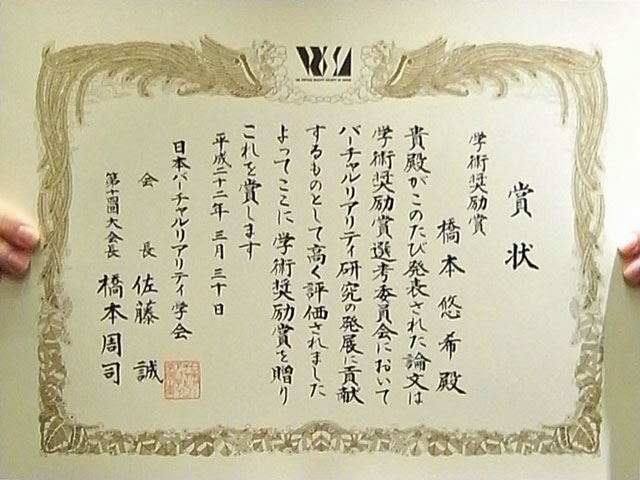 VRSJ
THE VIRTUAL REALITY SOCIETY OF JAPAN
賞状
学術奨励賞
橋本悠希殿
貴殿がこのたび発表された論文は
学術奨励賞選考委員会において
バーチャルリアリティ研究の発展に貢献
するものとして高く評価されました
よってここに学術奨励賞を贈り
これを賞します
平成二十二年 三月 三十日
日本バーチャルリアリティ学会
会長 佐藤 誠
大会長 橋本周司